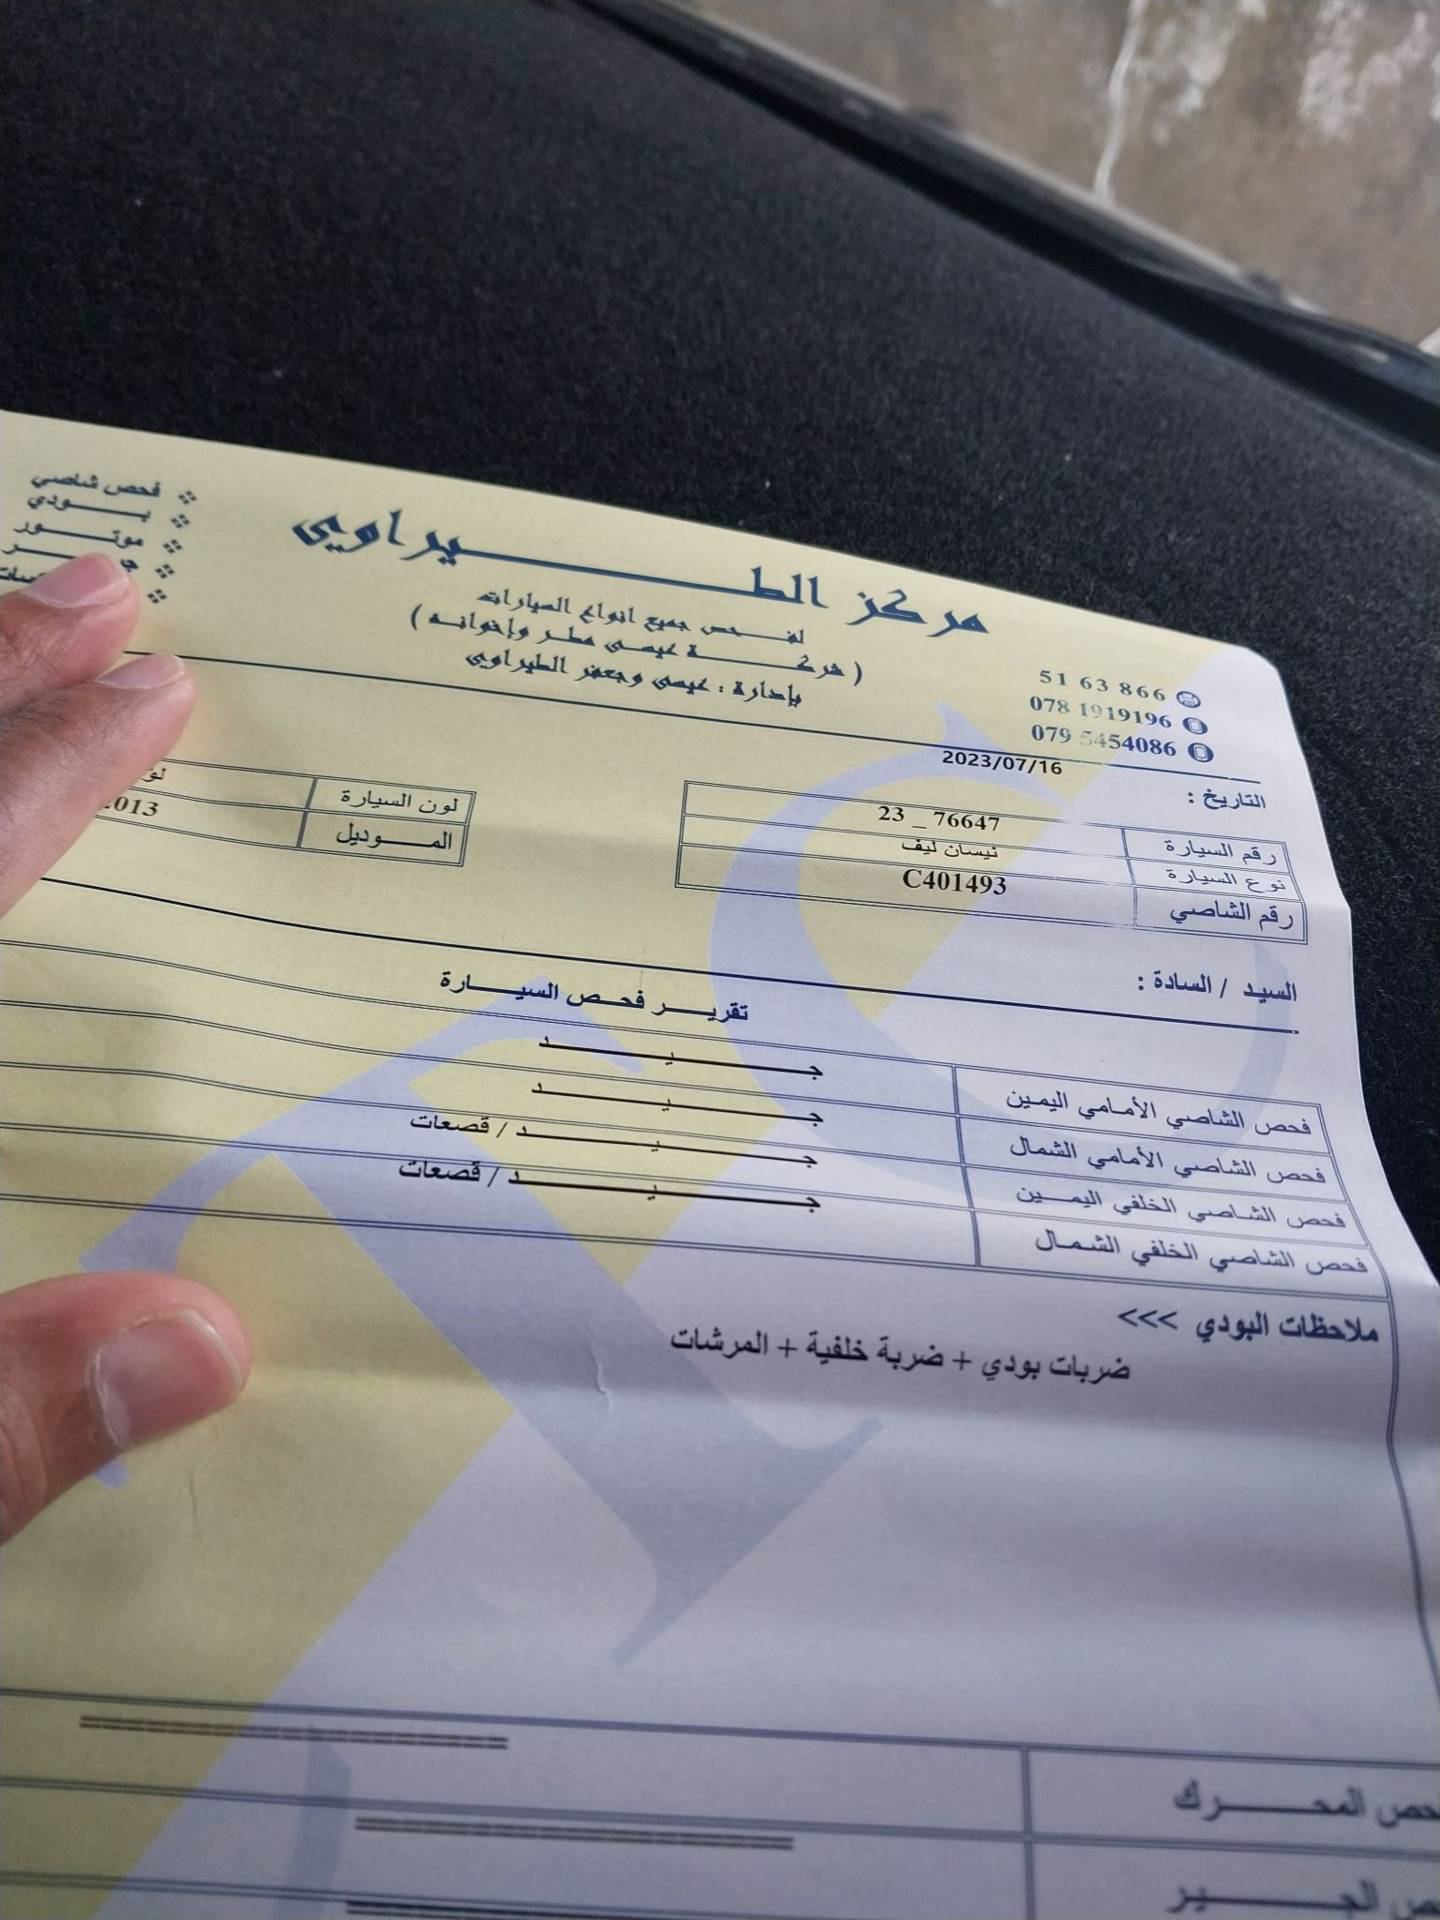 مركز الطيراوي
لفحص جميع انواع السيارات
( شركة عيسى مطر وإخوانه )
بإدارة : عيسى وجعفر الطيراوي
فحص شاصي
بودي
موتور
51 63 866
078 1919196
079 5454086
التاريخ : 2023/07/16
رقم السيارة 23 _ 76647
نوع السيارة نيسان ليف
رقم الشاصي C401493
لون السيارة
الموديل 013
السيد / السادة :
تقرير فحص السيارة
فحص الشاصي الأمامي اليمين جيد
فحص الشاصي الأمامي الشمال جيد
فحص الشاصي الخلفي اليمين جيد / قصعات
فحص الشاصي الخلفي الشمال جيد / قصعات
ملاحظات البودي >>>
ضربات بودي + ضربة خلفية + المرشات
حص المحرك
ص الجير